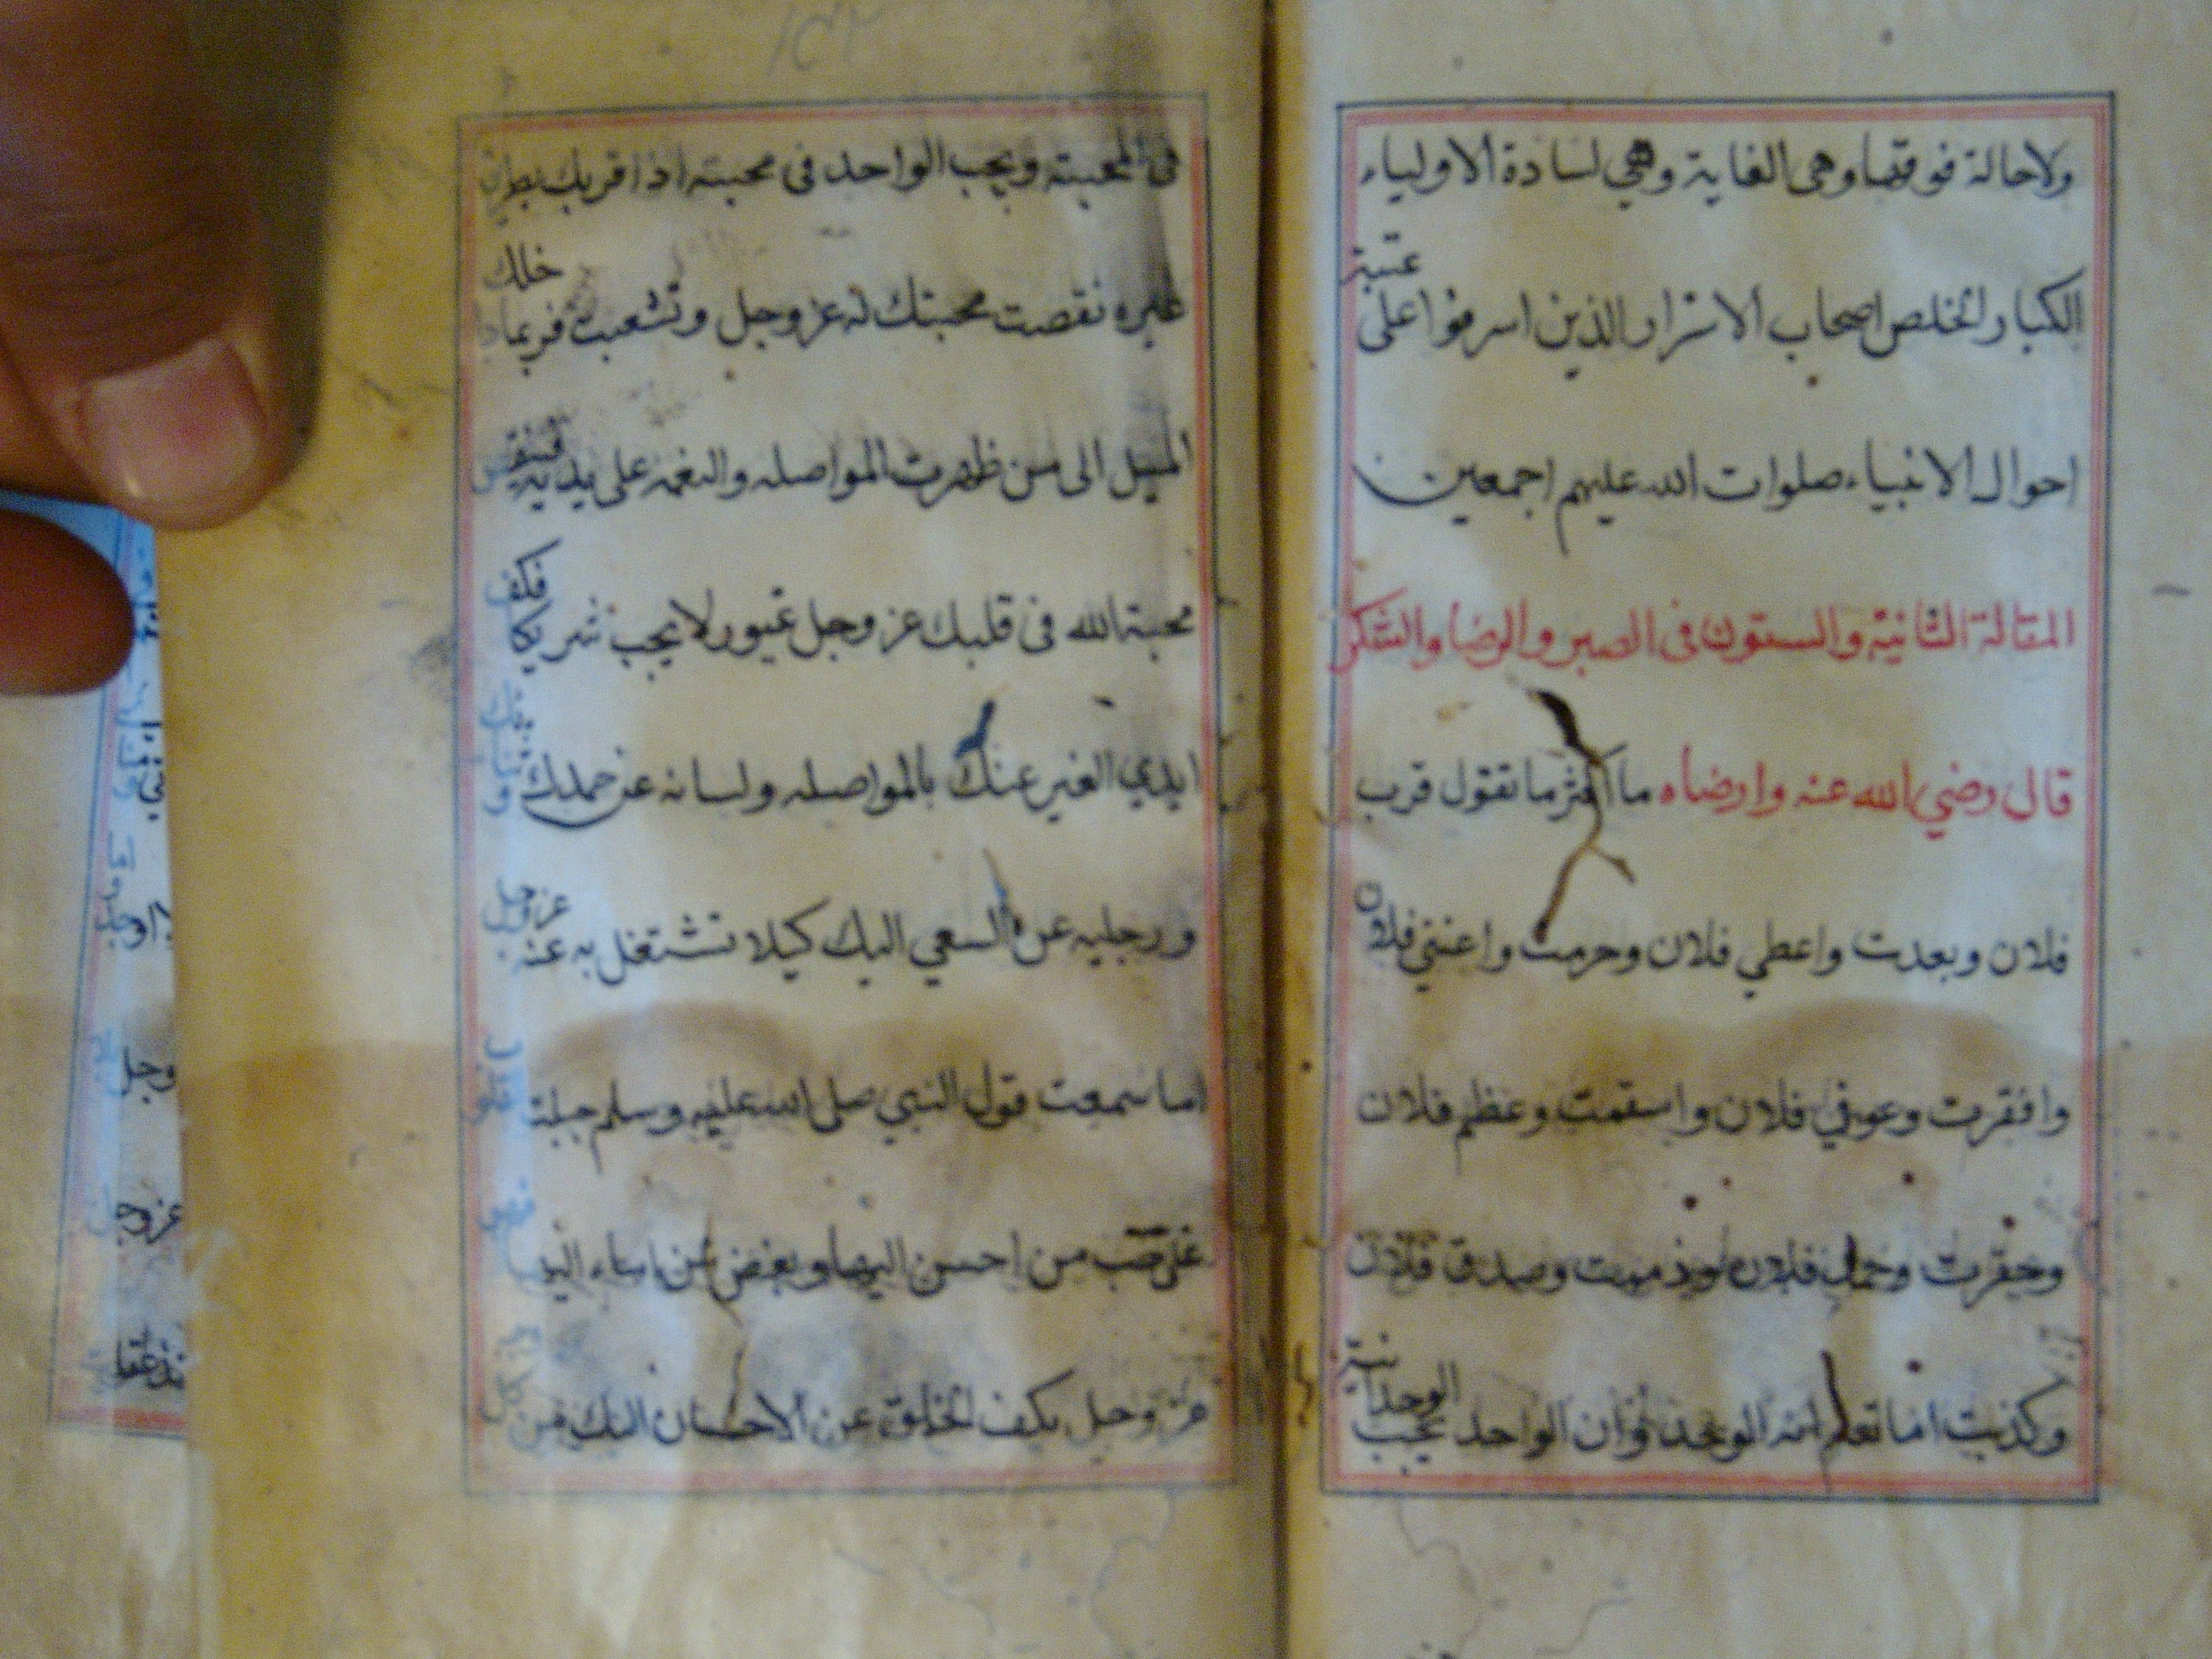 ولا حالة فوقها وهي الغاية وهي لسادة الاولياء
الكبار الخلص اصحاب الاسرار الذين اسرفوا على عتبة
احوال الانبياء صلوات الله عليهم اجمعين
المقالة الثانية والستون فى الصبر والرضا والشكر
قال رضي الله عنه وارضاه ما اكثر ما تقول قرب
فلان وبعدت واعطي فلان وحرمت واعنني فلان
وافقرت وعوفي فلان واسقمت وعظم فلان
وحقرت وحمد فلان وذممت وصدق فلان
وكذبت اما تعلم انه الواحد وان الواحد يحب الوحدانية
فى المحبة ويحب الواحد فى محبته اذا قربك بطريق
غيره نقصت محبتك له عز وجل وتشعبت فربما دخلك
الميل الى من ظهرت المواصله والنعمة على يديه فتنقص
محبة الله فى قلبك عز وجل غيور لا يحب شريكا فكف
ايدي الغير عنك بالمواصله ولسانه عن حمدك
ورجليه عن السعي اليك كيلا تشتغل به عنه عز وجل
اما سمعت قول النبي صلى الله عليه وسلم جبلت
على حب من احسن اليها وبغض من اساء اليها
عز وجل يكف الخلق عن الاحسان اليك من
وجل
عز وجل